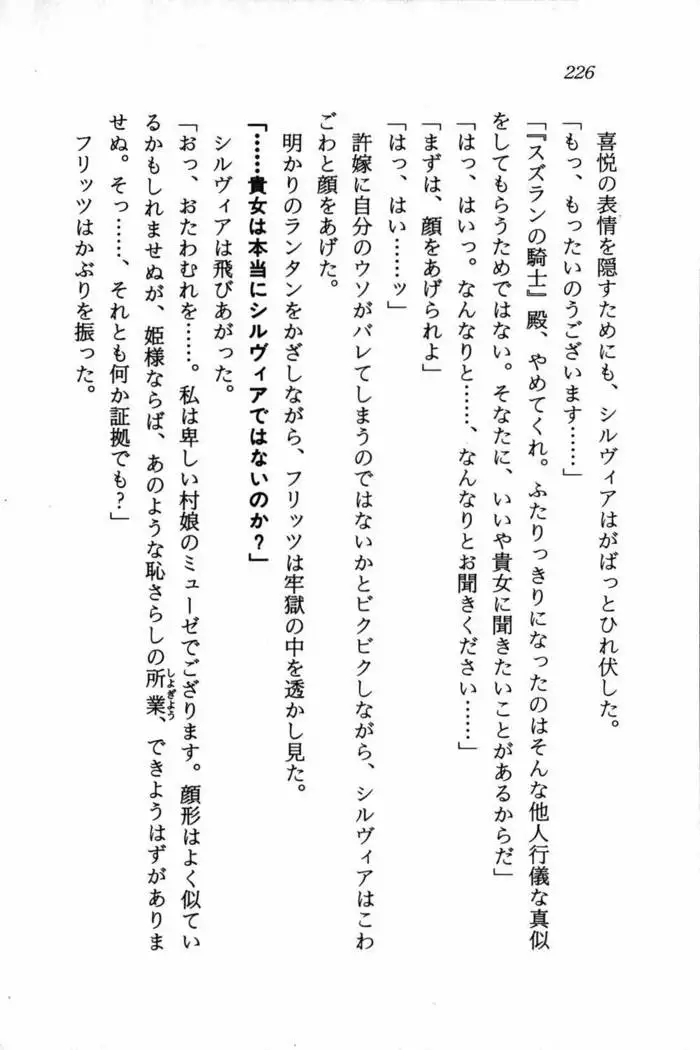 226
喜悦の表情を隠すためにも、シルヴィアはがばっとひれ伏した。
「もっ、もったいのうございます……」
「『スズランの騎士』殿、やめてくれ。ふたりっきりになったのはそんな他人行儀な真似
をしてもらうためではない。そなたに、いいや貴女に聞きたいことがあるからだ」
「はっ、はいっ。なんなりと……、なんなりとお聞きください……」
「まずは、顔をあげられよ」
「はっ、はい……ッ」
許嫁に自分のウソがバレてしまうのではないかとビクビクしながら、シルヴィアはこわ
ごわと顔をあげた。
明かりのランタンをかざしながら、フリッツは牢獄の中を透かし見た。
「……貴女は本当にシルヴィアではないのか?」
シルヴィアは飛びあがった。
「おっ、おたわむれを……。私は卑しい村娘のミューゼでござります。顔形はよく似てい
るかもしれませぬが、姫様ならば、あのような恥さらしの所業、できようはずがありま
しよぎよう
せぬ。そっ……、それとも何か証拠でも?」
フリッツはかぶりを振った。